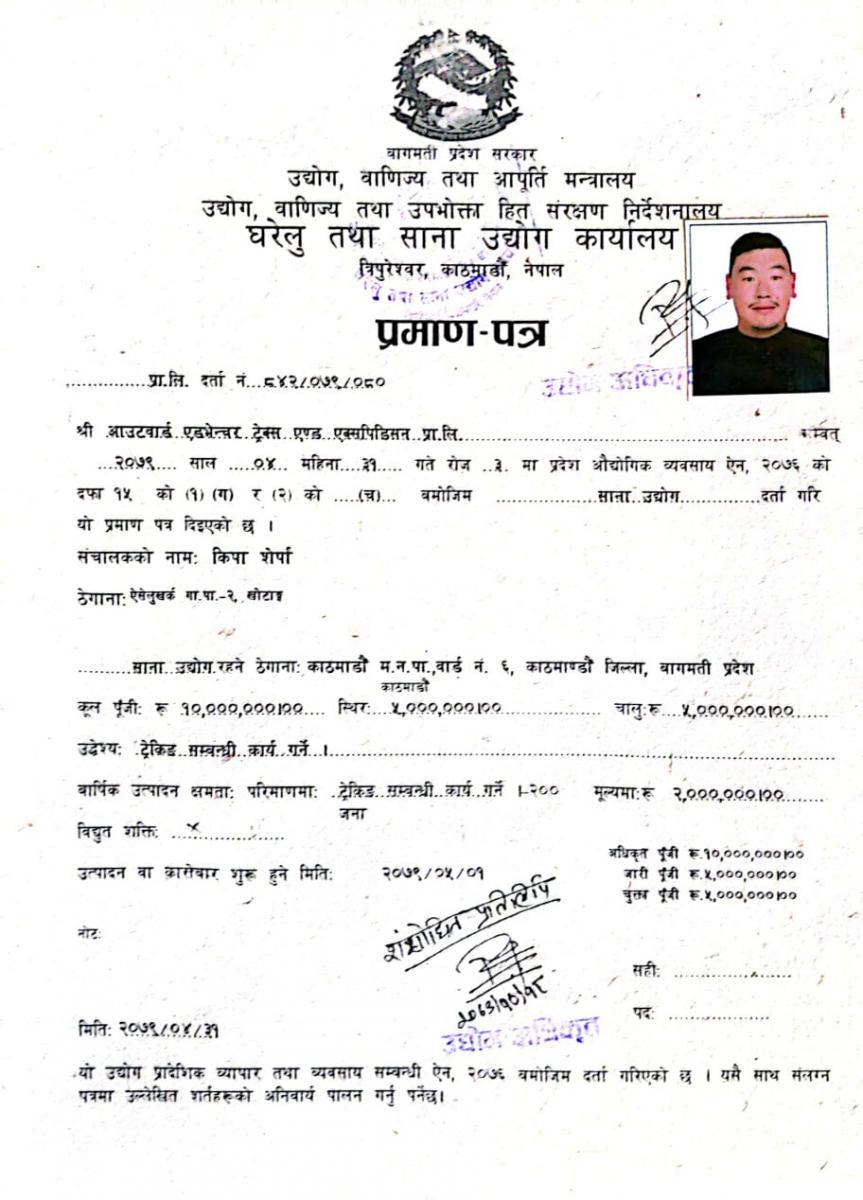 बागमती प्रदेश सरकार
उद्योग, वाणिज्य तथा आपूर्ति मन्त्रालय
उद्योग, वाणिज्य तथा उपभोक्ता हित संरक्षण निर्देशनालय
घरेलु तथा साना उद्योग कार्यालय
त्रिपुरेश्वर, काठमाडौं, नेपाल
प्रमाण-पत्र
उद्योग अधिकृत
...............प्रा.लि. दर्ता नं...८४२/०७९/०८०
श्री आउटवार्ड एडभेन्चर ट्रेक्स एण्ड एक्सपिडिसन प्रा.लि............................ सम्वत्
...२०७९.... साल .....०४... महिना....३१..... गते रोज ..३. मा प्रदेश औद्योगिक व्यवसाय ऐन, २०७६ को
दफा १५ को (१) (ग) र (२) को .....(च)... बमोजिम ...............साना उद्योग...............दर्ता गरि
यो प्रमाण पत्र दिइएको छ ।
संचालकको नाम: किपा शेर्पा
ठेगाना: ऐसेलुखर्क गा.पा.-२, खोटाङ
.........साना उद्योग.रहने ठेगाना: काठमाडौं म.न.पा.,वार्ड नं. ६, काठमाण्डौं जिल्ला, बागमती प्रदेश
काठमाडौं
कूल पूँजी: रू १०,०००,०००।००.... स्थिर: ..५,०००,०००।००................ चालु:रू....५,०००,०००।००......
उद्देश्य: ट्रेकिङ सम्बन्धी कार्य गर्ने ।
वार्षिक उत्पादन क्षमता: परिमाणमा: ट्रेकिङ सम्बन्धी कार्य गर्ने ।-२०० मूल्यमा:रू २,०००,०००।००
जना
विद्युत शक्ति: ...x...............
अधिकृत पूँजी रू.१०,०००,०००।००
उत्पादन वा कारोबार शुरू हुने मिति: २०७९/०५/०१
जारी पूँजी रू.५,०००,०००।००
चुक्ता पूँजी रू.५,०००,०००।००
नोट:
संशोधित प्रतिलिपि
सही: ......................
पद: ...................
उद्योग अधिकृत
मिति: २०७९/०४/३१
यो उद्योग प्रादेशिक व्यापार तथा व्यवसाय सम्बन्धी ऐन, २०७६ बमोजिम दर्ता गरिएको छ । यसै साथ संलग्न
पत्रमा उल्लेखित शर्तहरूको अनिवार्य पालन गर्नु पर्नेछ।